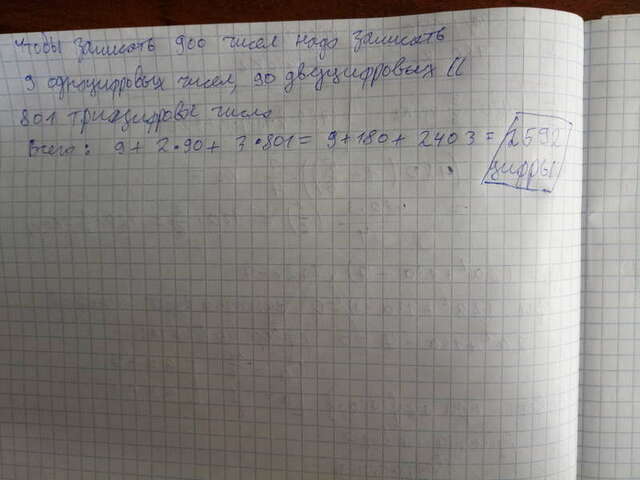 Чтобы записать 900 чисел надо записать
9 одноцифровых чисел, 90 двуцифровых и
801 трицифровые числа.
Всего: 9 + 2 · 90 + 3 · 801 = 9 + 180 + 2403 = 2592
цифры